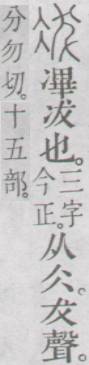 冹㓖冹也。三字今正。从仌。犮聲。
分勿切。十五部。